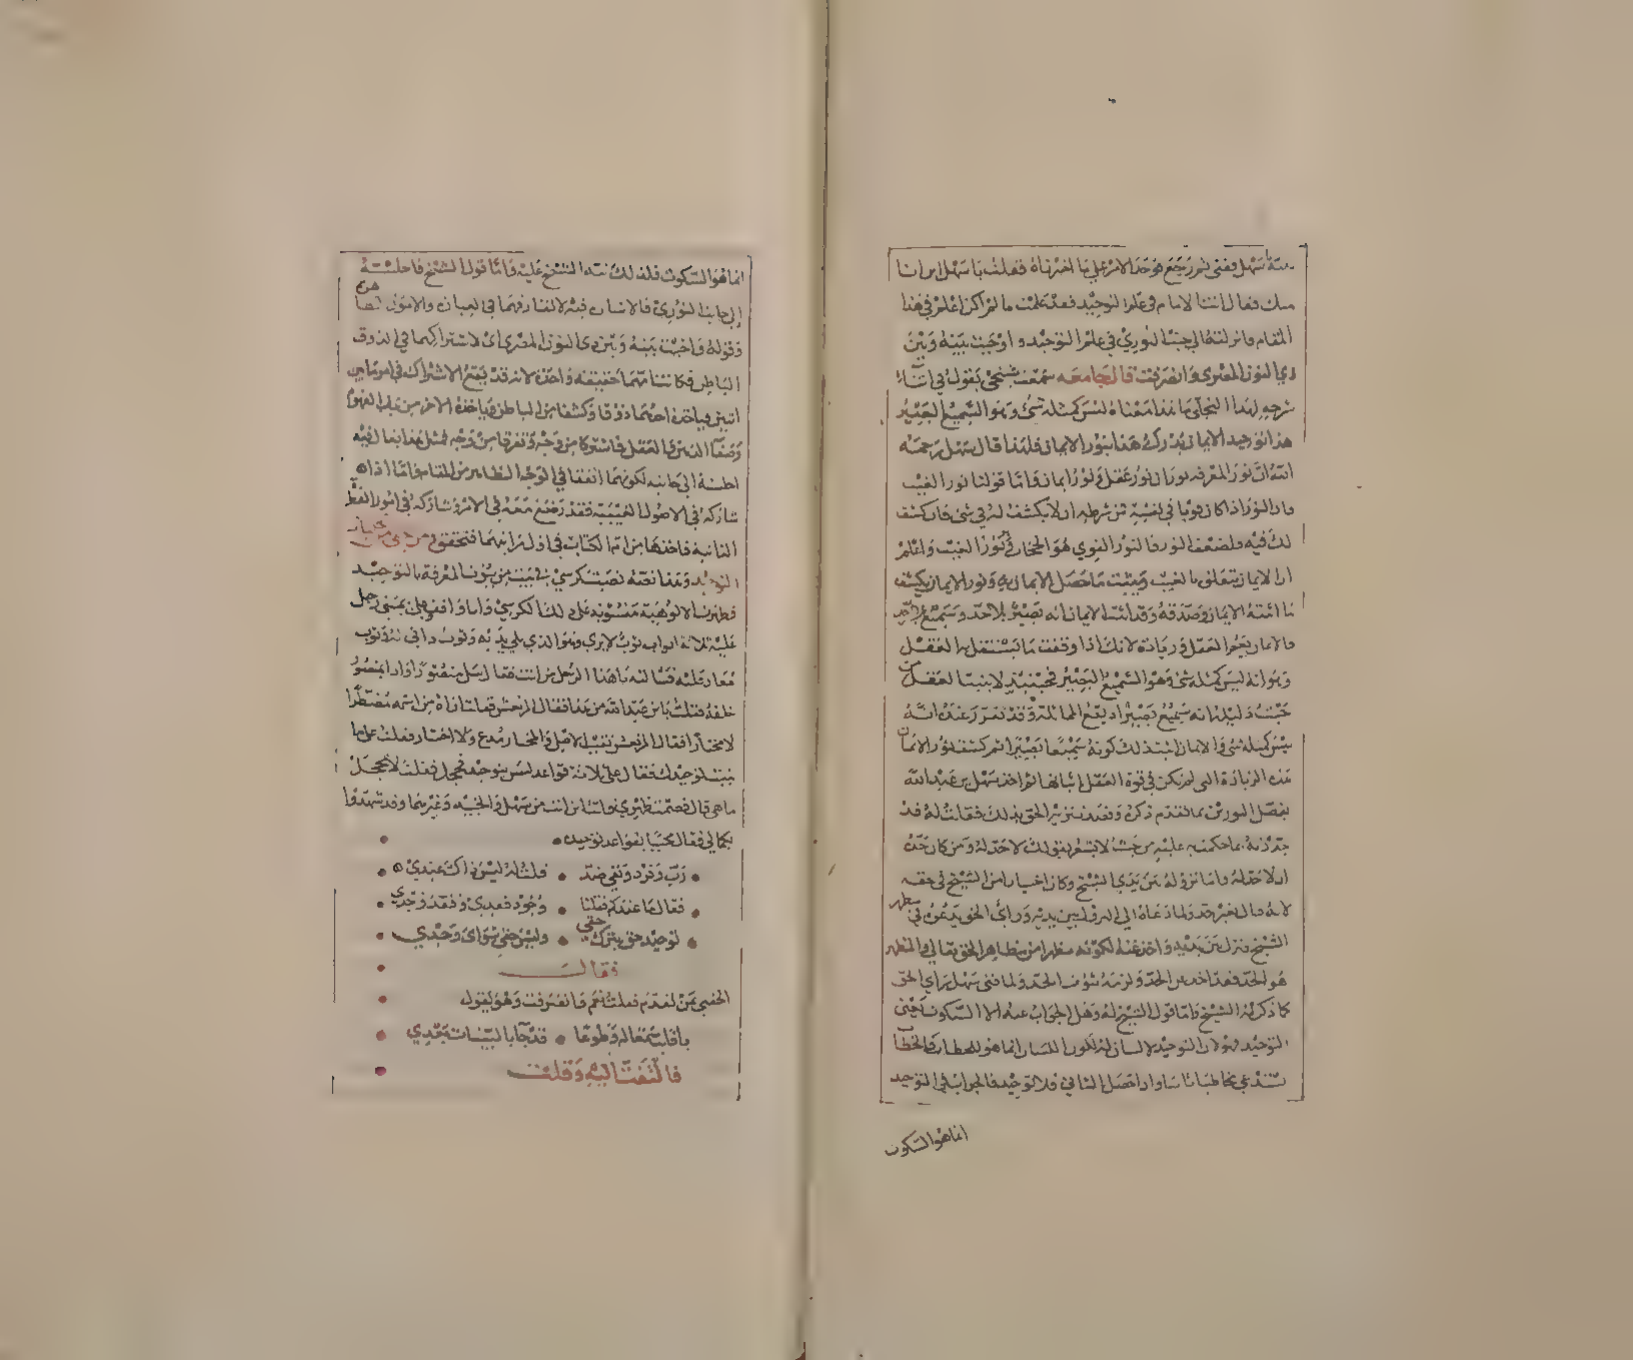 سنة سهل ففنى ثم رجع فوجد الامر على ما اخبرناه فقلت يا سهل اين انا
منك فقال انت الامام في علم التوحيد فقد علمت ما لم اكن اعلم في هذا
المقام فانزلته الى جنب النوري في علم التوحيد واوخيت بينه وبين
ذي النون المصري وانصرفت قال جامعه سمعت شيخي يقول في اثناء
شرحه لهذا التجلي ما هذا معناه ليس كمثله شيء وهو السميع البصير
هذا توحيد الايمان يدرك هذا بنور الايمان فلهذا قال سهل رحمه
الله ان نور المعرفه نوران نور عقل ونور ايمان واما قولنا نور الغيب
فان النور اذا كان قويا في نفسه من شرطه ان لا يكشف له في شيء فان كشف
لك فيه فلضعف النور فالنور القوي هو الحجاب في نور الغيب واعلم
ان الايمان يتعلق بالغيب ويثبت ما حصل الايمان به ونور الايمان يكشف
ما اثبته الايمان وصدقه وقد اثبت الايمان انه بصير بلا حد وسميع
فالايمان يعم العقل وزيادة لانك اذا وقفت ما يستقل به العقل
وهو انه ليس كمثله شيء وهو السميع البصير فحينئذ لا يثبت العقل من
حيث دليله انه سميع بصير اذ يقع المماثلة وقد تقرر عنده انه
ليس كمثله شيء والايمان اثبت ذلك كونه سميعا بصيرا ثم كشف نور الايمان
هذه الزيادة التي لم يكن في قوة العقل اثباتها ثم اخذ سهل بن عبد الله
يفصل النورين بما تقدم ذكره وقصد تنزيه الحق بذلك فقلت له قد
حددته بما حكمت به عليه من حيث لا تشعر بقولك لا حد له ومن كان حده
ان لا حد له واما نزوله بين يدي الشيخ وكان اخبارا من الشيخ في حقه
لانه قال لغيره قد ولما دعاه الى النزول بين يديه وراى الحق يدعوه في مظهر
الشيخ فنزل بين يديه واخذ عنه لكونه مظهرا من مظاهر الحق تعالى والمظهر
هو الحد فقد اخذ عن الحد ولزمه ثبوت الحد ولما فنى سهل براي الحق
كما ذكر له الشيخ واما قول الشيخ له وهل الجواب عنه الا السكوت يعني
التوحيد فهو لان التوحيد لا لسان له فان اللسان انما هو للخطاب والخطاب
يستدعي مخاطبا ثانيا واذا حصل الثاني فلا توحيد فالجواب في التوحيد
انما هو السكوت
انما هو السكوت فلهذا نبه الشيخ عليه واما قول الشيخ فاجلسته
الى جانب النوري فالاشارة فيه لالتقائهما في العيان والاصول لهما
وقوله واخيت بينه وبين ذي النون المصري اي لاشتراكهما في الذوق
الباطن فكانت امهما حقيقة واحدة لانه قد يقع الاشتراك في امر ما بين
اثنين وياخذه احدهما ذوقا وكشفا من الباطن وياخذه الاخر من على الفهم
وصفاء الذهن في العقل فاشتركا من وجه وتفرقا من وجه فمثل هذا يقال فيه
اجلسته الى جانبه لكونهما اتفقا في الوجه الظاهر من المقام فاما اذا
شاركه في الاصول الغيبية فقد رضع معه في الام وشاركه في امور الفطر
الثانية فاخذها من ام الكتاب في اول مراتبهما فتحقق ومن تجلي من تجليات
التوحيد وهذا نصه نصبت كرسي في بيت من بيوت المعرفة بالتوحيد
فظهرت الالوهية مستوية على ذلك الكرسي وانا واقف وعلى يميني رجل
عليه ثلاثة اثواب ثوب لا يرى وهو الذي يلي بدنه وثوب ذاتي له وثوب
معار عليه فسالته يا هذا الرجل من انت فقال سل منصورا واذا بمنصور
خلفه فقلت يا ابن عبد الله من هذا فقال المرتعش فقلت اراه من اسمه مضطرا
لا مختارا فقال المرتعش بقيت على الاصل والمختار مدع ولا اختيار فقلت على ما
بنيت توحيدك فقال على ثلاثة قواعد ليس توحيد فخجل فقلت لا تخجل
ما هي قال قصمت ظهري فقلت اين انت من سهل والجنيد وغيرهما وقد شهدوا
بكمالي فقال مجيبا بقواعد توحيده
رب وفرد ونفي ضد • قلت له ليس ذاك عندي
فقال ما عندكم فقلنا • وجود فقدي وفقد وجدي
توحيد حقي بترك حقي • وليس حقي سواي وحدي
فقال
الحقني بمن تقدم فقلت نعم وانصرفت وهو يقول
يا قلب سمعا له وطوعا • قد جاء بالبينات بعدي
فالتفت اليه وقلت